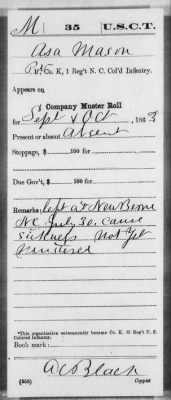 M 35 U.S.C.T.
Asa Mason
Pvt, Co. K, 1 Reg't N. C. Col'd Infantry.
Appears on
Company Muster Roll
for Sept & Oct, 1863
Present or absent Absent
Stoppage, $ 100 for
Due Gov't, $ 100 for
Remarks: left at New Berne
NC July 30. cause
sickness Not Yet
Mustered
*This organization subsequently became Co. K, 35 Reg't U. S.
Colored Infantry.
Book mark:
(358) Copyist